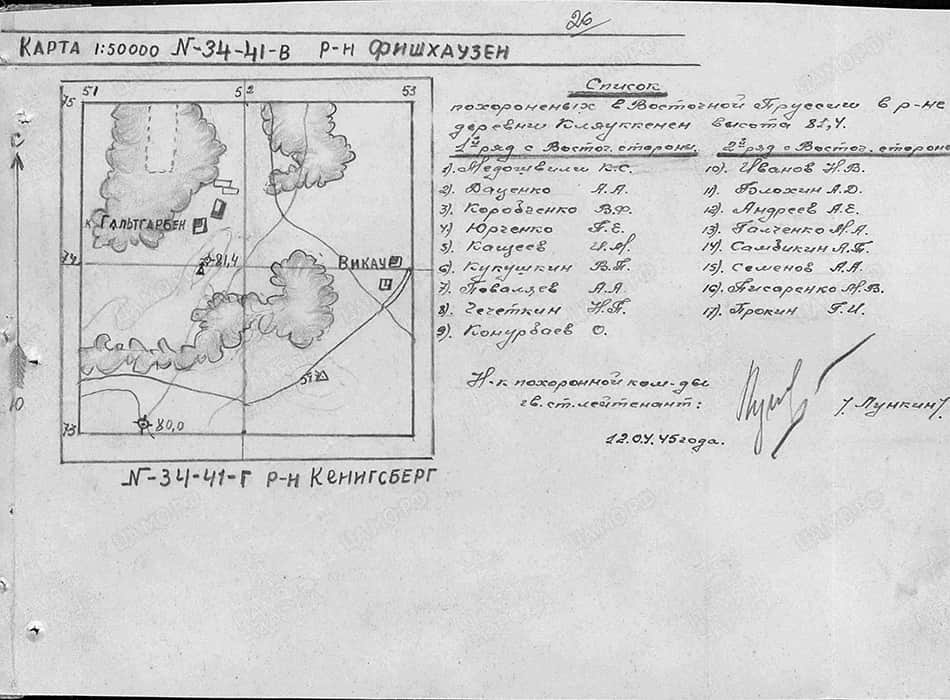 26
КАРТА 1:50000 N-34-41-В Р-Н ФИШХАУЗЕН
75 51 52 53
К ГАЛЬТГАРБЕН
74 81,4 ВИКАУ
73 80,0
N-34-41-Г Р-Н КЕНИГСБЕРГ
Список
похороненых в Восточной Пруссии в р-не
деревни Кляуккенен высота 81,4.
1й ряд с Восточ. стороны. 2й ряд с Восточ. стороны
1). Медошвили К.С. 10). Иванов Н.В.
2). Даценко А.А. 11). Блохин А.Д.
3). Коровченко В.Ф. 12). Андреев А.Е.
4). Юрченко Г.Е. 13). Галченко М.А.
5). Кащеев И.М. 14). Самбикин А.П.
6). Кукушкин В.П. 15). Семенов А.А.
7). Поваляев А.А 16). Писаренко М.В.
8). Чечеткин Н.П. 17). Прокин Г.И.
9). Конурбаев О.
Н-к похоронной ком-ды
гв. ст. лейтенант: /Лункин/
12.04.45 года.